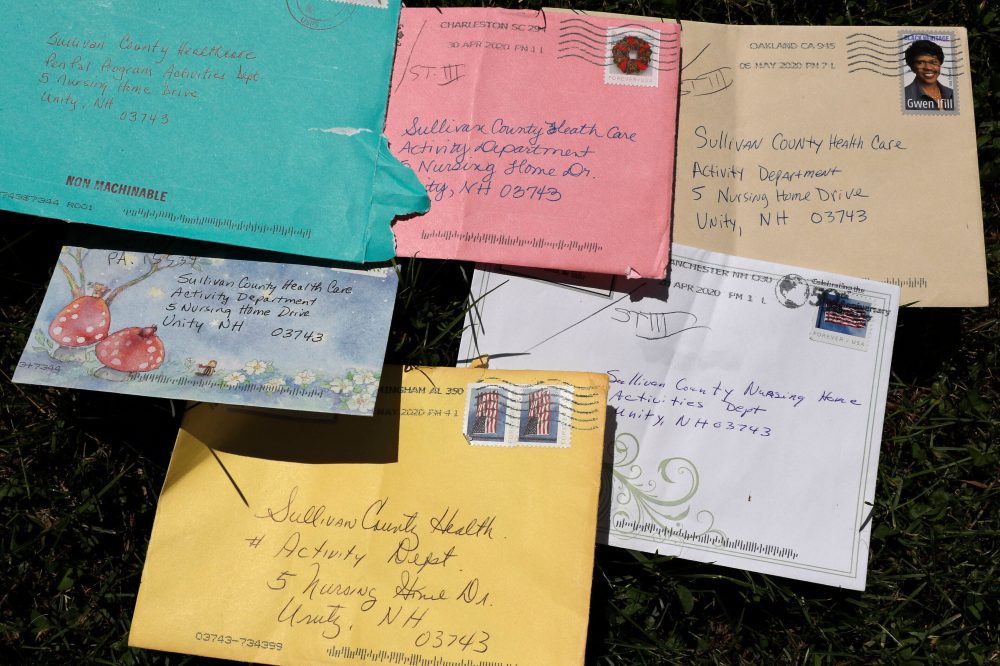 Sullivan County Healthcare
PenPal Program Activities Dept
5 Nursing Home Drive
Unity, NH
03743
NON MACHINABLE
CHARLESTON SC 294
30 APR 2020 PM 1 L
FOREVER/USA
Sullivan County Heath Care
Activity Department
5 Nursing Home Dr.
NH 03743
OAKLAND CA 945
05 MAY 2020 PM 7 L
BLACK HERITAGE
Gwen Ifill
Sullivan County Health Care
Activity Department
5 Nursing Home Drive
Unity, NH 03743
PA. 15539
Sullivan County Health Care
Activity Department
5 Nursing Home Drive
Unity NH 03743
APR 2020 PM 1 L
Celebrating the
FOREVER / USA
Sullivan County Nursing Home
Activities Dept
Unity, NH 03743
AL 350
MAY 2020 PM 4 L
Sullivan County Health
# Activity Dept.
5 Nursing Home Dr.
Unity, NH
03743
03743-734399